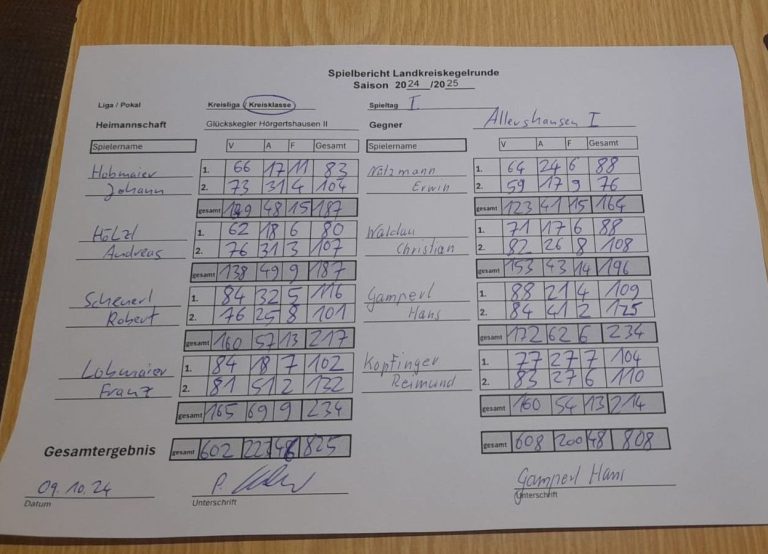 Spielbericht Landkreiskegelrunde
Saison 2024/2025
Liga / Pokal Kreisliga / Kreisklasse Spieltag I.
Heimannschaft Glückskegler Hörgertshausen II Gegner Allershausen I
Spielername V A F Gesamt Spielername V A F Gesamt
Hobmaier 1. 66 17 11 83 Nötzmann 1. 64 24 6 88
Johann 2. 73 31 4 104 Erwin 2. 59 17 9 76
gesamt 139 48 15 187 gesamt 123 41 15 164
Hölzl 1. 62 18 6 80 Waldau 1. 71 17 6 88
Andreas 2. 76 31 3 107 Christian 2. 82 26 8 108
gesamt 138 49 9 187 gesamt 153 43 14 196
Scheuerl 1. 84 32 5 116 Gamperl 1. 88 21 4 109
Robert 2. 76 25 8 101 Hans 2. 84 41 2 125
gesamt 160 57 13 217 gesamt 172 62 6 234
Lobmaier 1. 84 18 7 102 Kopfinger 1. 77 27 7 104
Franz 2. 81 51 2 132 Reimund 2. 83 27 6 110
gesamt 165 69 9 234 gesamt 160 54 13 214
Gesamtergebnis gesamt 602 223 46 825 gesamt 608 200 48 808
09.10.24 P. Gamperl Hans
Datum Unterschrift Unterschrift